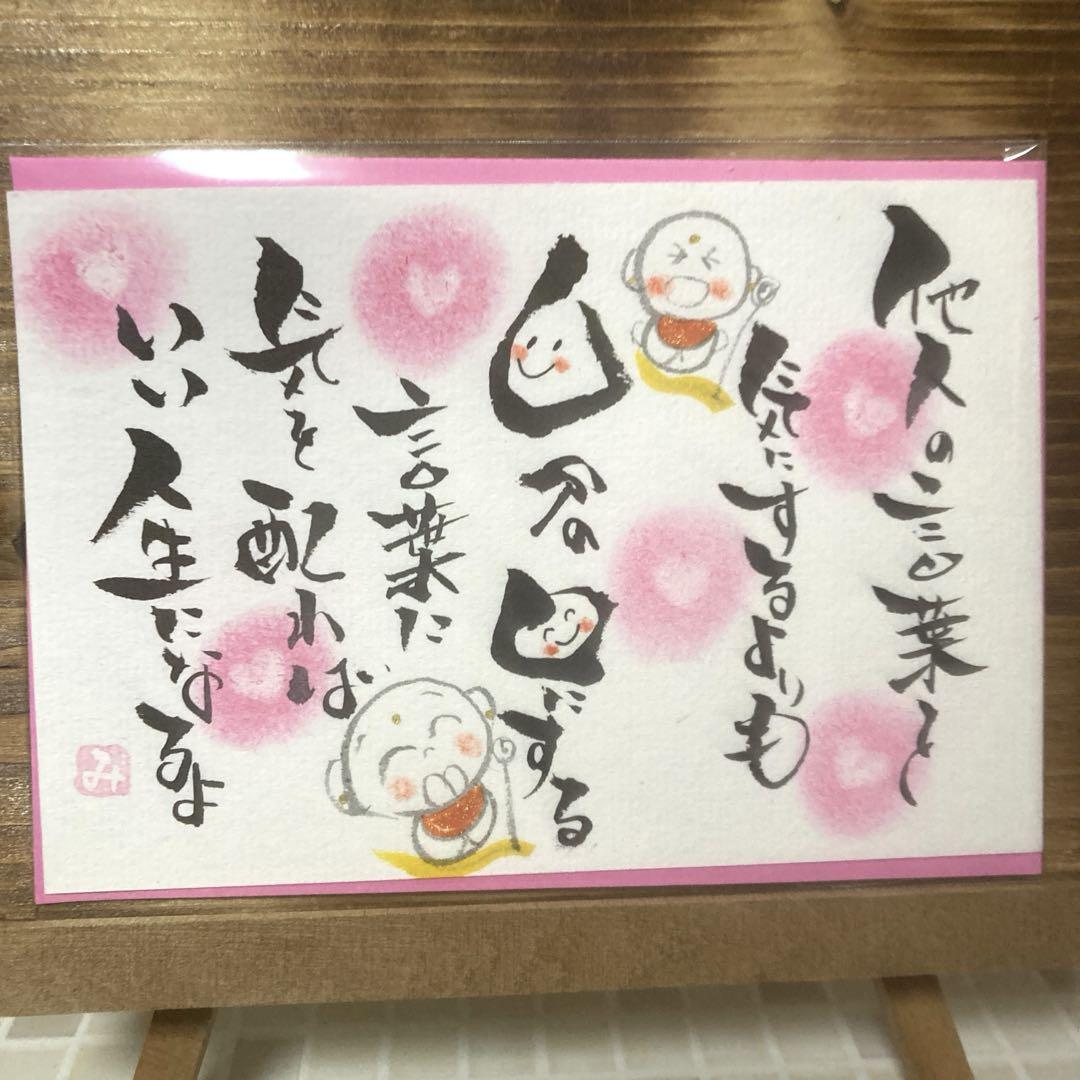 他人の言葉を
気にするよりも
自分の口にする
言葉に
気を配れば
いい人生になるよ
み